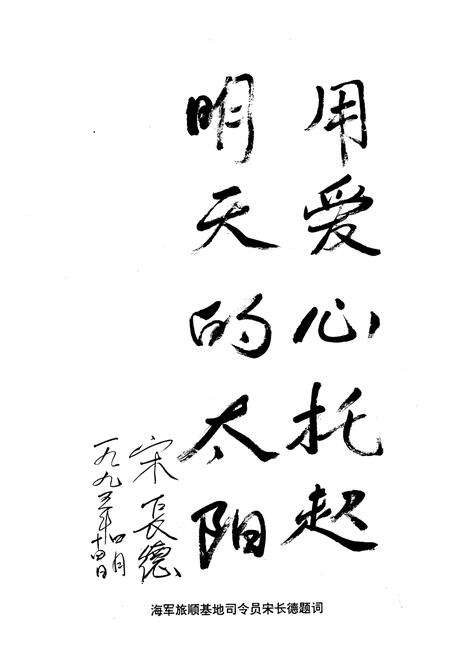 用爱心托起
明天的太阳
宋長德
一九九三年四月
十四日
海军旅顺基地司令员宋长德题词